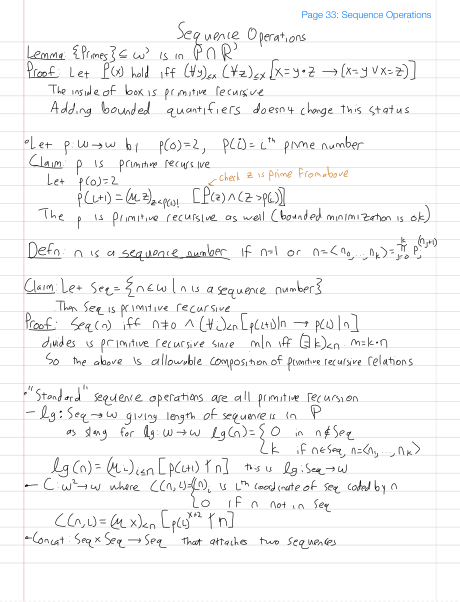 Page 33: Sequence Operations
Sequence Operations
Lemma: {Primes} ⊆ ω is in P ∩ R
Proof: Let P(x) hold iff (∀y)≤x (∀z)≤x [x=y•z → (x=y ∨ x=z)]
The inside of box is primitive recursive
Adding bounded quantifiers doesn't change this status
•Let p: ω→ω by p(0)=2, p(i)= iᵗʰ prime number
Claim: p is primitive recursive
Let p(0)=2
check z is prime from above
p(i+1) = (μz)z≤p(i)! [P(z) ∧ (z > p(i))]
The p is primitive recursive as well (bounded minimization is ok)
Defn: n is a sequence number if n=1 or n=<n₀,...,nₖ> = ∏ᵏⱼ₌₀ pⱼ^(nⱼ+1)
Claim: Let Seq = {n∈ω | n is a sequence number}
Then Seq is primitive recursive
Proof: Seq(n) iff n≠0 ∧ (∀i)<n [p(i+1)|n → p(i)|n]
divides is primitive recursive since m|n iff (∃k)<n m=k•n
So the above is allowable composition of primitive recursive relations
•"Standard" sequence operations are all primitive recursion
– lg: Seq→ω giving length of sequence is in P
as slang for lg: ω→ω lg(n) = { 0 in n∉Seq
k if n∈Seq, n=<n₁,...,nₖ>
lg(n) = (μi)i≤n [p(i+1) ∤ n] this is lg: Seq→ω
– C: ω²→ω where C(n,i) = { (n)ᵢ is iᵗʰ coordinate of seq coded by n
0 if n not in Seq
C(n,i) = (μx)<n [p(i)^x+2 ∤ n]
–Concat: Seq × Seq → Seq that attaches two sequences